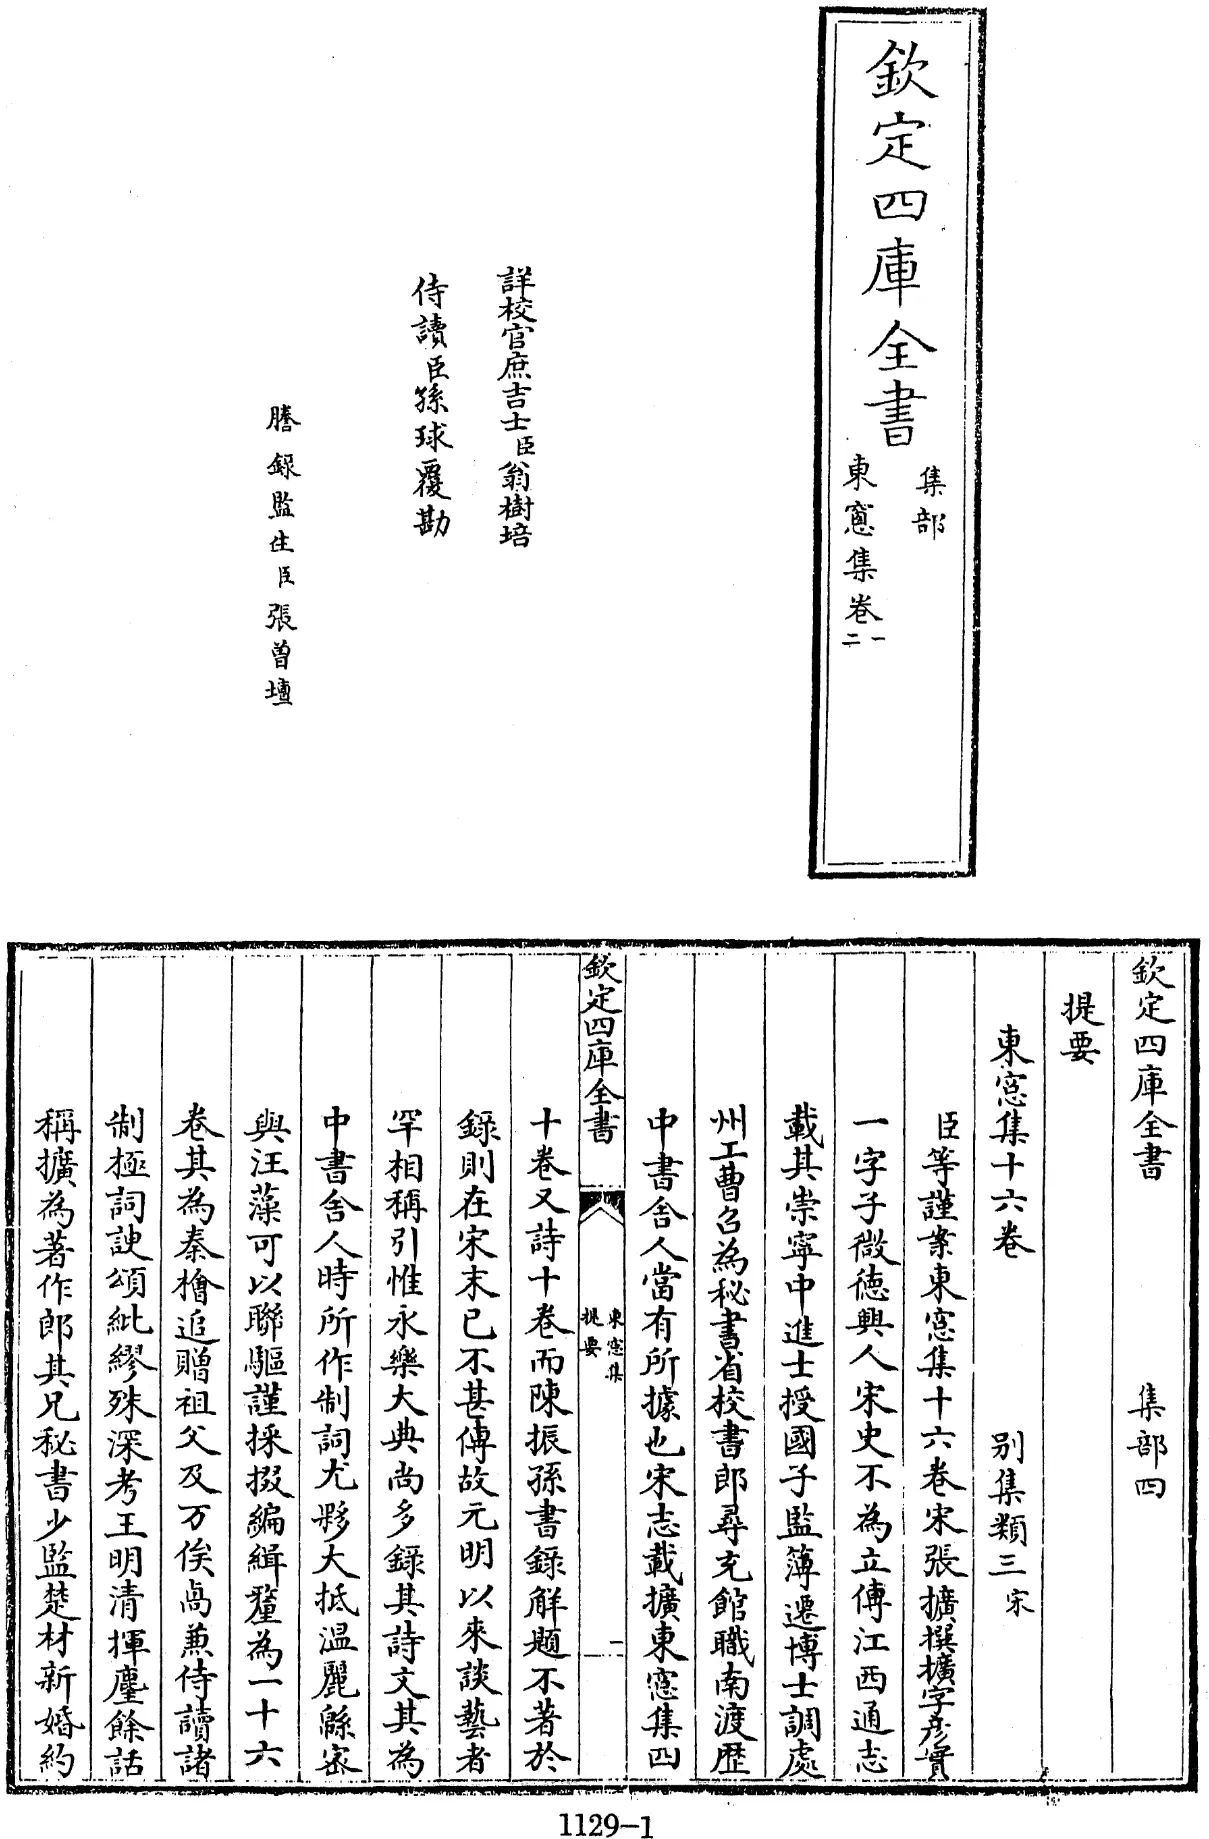 欽定四庫全書
集部
東窻集卷一
二
詳校官庶吉士臣翁樹培
侍讀臣孫球覆勘
謄錄監生臣張曾壇
欽定四庫全書 集部四
提要
東窻集十六卷 别集類三宋
臣等謹案東窻集十六卷宋張擴撰擴字彦實
一字子微徳興人宋史不為立傳江西通志
載其崇寧中進士授國子監簿遷博士調處
州工曹召為秘書省校書郎尋充館職南渡歴
中書舍人當有所據也宋志載擴東窻集四
欽定四庫全書
東窻集
提要
一
十卷又詩十卷而陳振孫書錄解題不著於
錄則在宋末已不甚傳故元明以來談藝者
罕相稱引惟永樂大典尚多錄其詩文其為
中書舍人時所作制詞尤夥大抵温麗緜宻
與汪藻可以聯驅謹採掇編緝釐為一十六
卷其為秦檜追贈祖父及万俟卨兼侍讀諸
制極詞諛頌紕繆殊深考王明清揮麈餘話
稱擴為著作郎其兄秘書少監楚材新婚約
1129-1